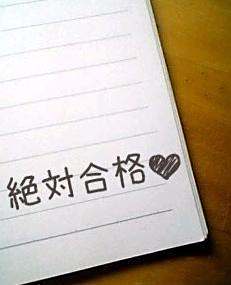 絶対合格♥